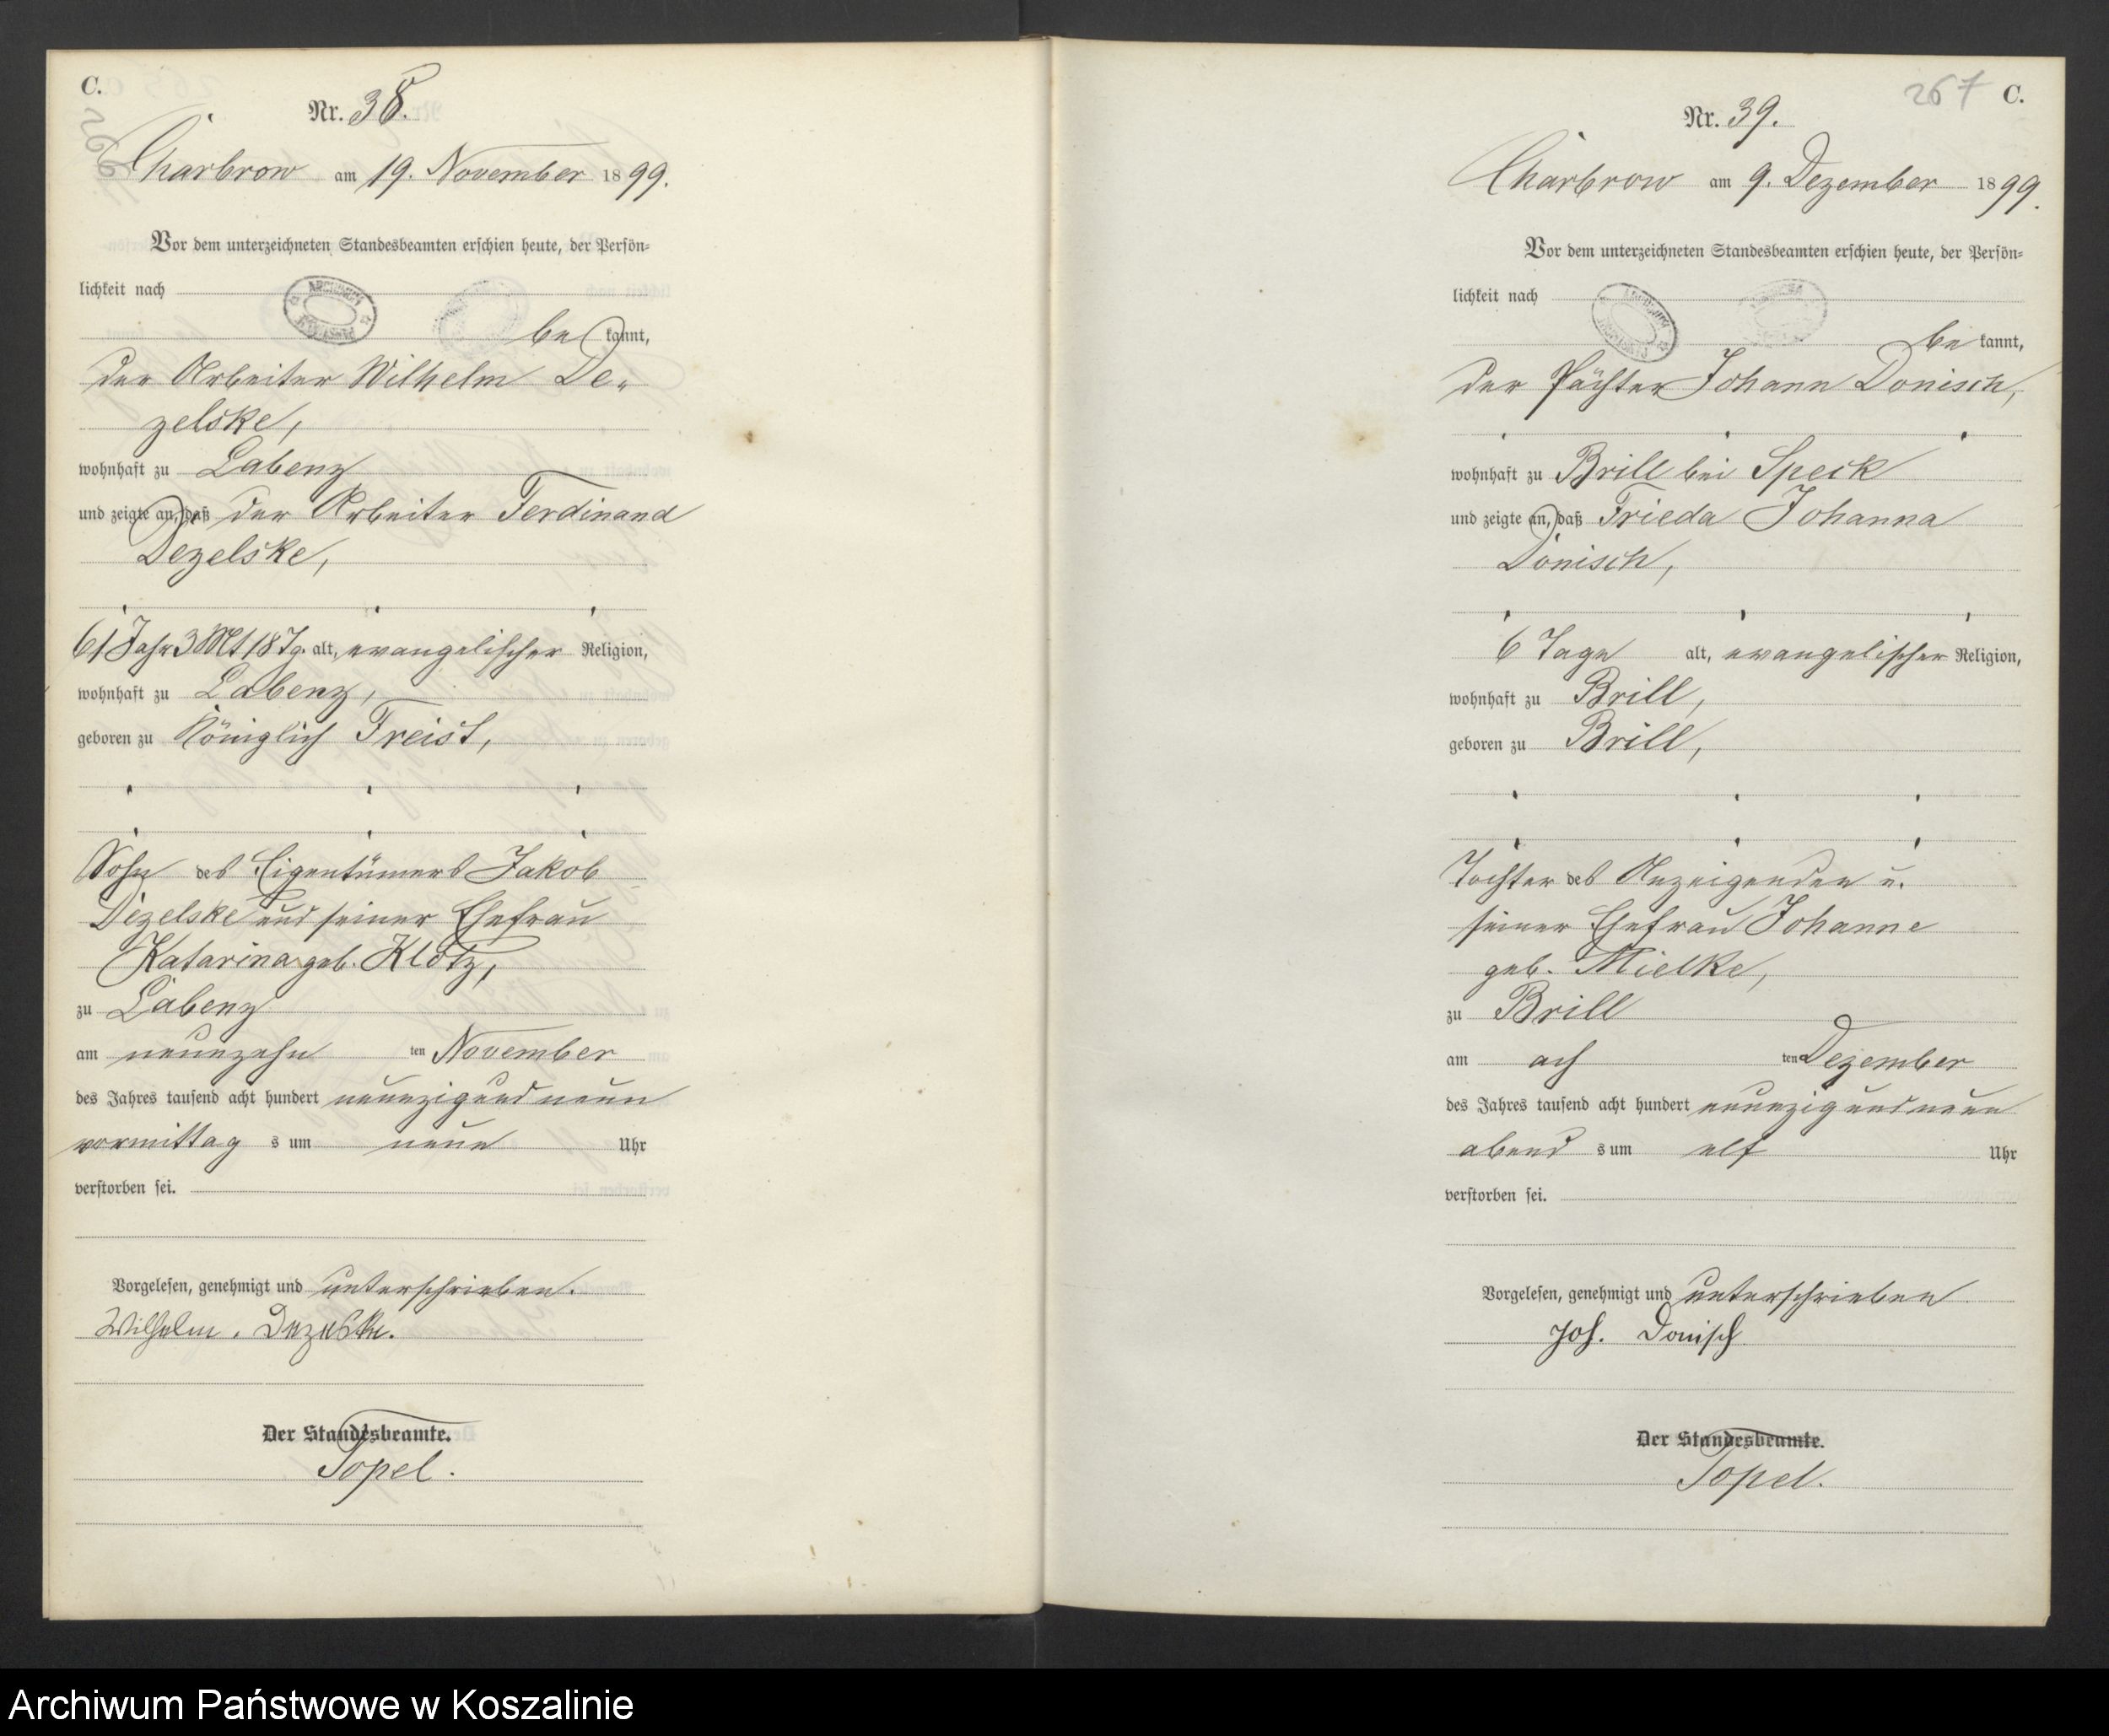 C.
266
Nr. 38.
Charbrow am 19. November 1899.
Vor dem unterzeichneten Standesbeamten erschien heute, der Persön-
lichkeit nach
bekannt,
der Arbeiter Wilhelm De-
zelske,
wohnhaft zu Labenz
und zeigte an, daß der Arbeiter Ferdinand
Dezelske,
61 Jahr 3 Mt 18 Tg. alt, evangelischer Religion,
wohnhaft zu Labenz,
geboren zu Königlich Freist,
Sohn des Eigentümers Jakob
Dezelske und seiner Ehefrau
Katarina geb. Klotz,
zu Labenz
am neunzehnten November
des Jahres tausend acht hundert neunzig und neun
vormittags um neun Uhr
verstorben sei.
Vorgelesen, genehmigt und unterschrieben.
Wilhelm. Dezelske.
Der Standesbeamte.
Topel.
267 C.
Nr. 39.
Charbrow am 9. Dezember 1899.
Vor dem unterzeichneten Standesbeamten erschien heute, der Persön-
lichkeit nach
bekannt,
der Pächter Johann Donisch,
wohnhaft zu Brill bei Speck
und zeigte an, daß Frieda Johanna
Donisch,
6 Tage alt, evangelischer Religion,
wohnhaft zu Brill,
geboren zu Brill,
Tochter des Anzeigenden u.
seiner Ehefrau Johanne
geb. Mielke,
zu Brill
am achten Dezember
des Jahres tausend acht hundert neunzig und neun
abends um elf Uhr
verstorben sei.
Vorgelesen, genehmigt und unterschrieben
Joh. Donisch
Der Standesbeamte.
Topel.
Archiwum Państwowe w Koszalinie